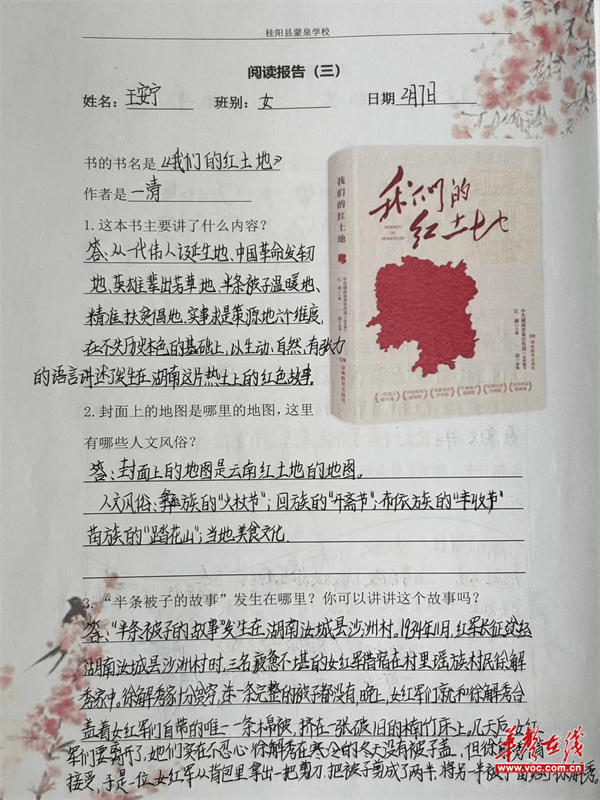 桂阳县蒙泉学校
阅读报告（三）
姓名：王安宁 班别：女 日期 2月7日
书的书名是《我们的红土地》
作者是一清
1.这本书主要讲了什么内容？
答：从一代伟人诞生地、中国革命发轫
地、英雄辈出芳草地、半条被子温暖地、
精准扶贫倡地、实事求是策源地六个维度，
在不失历史本色的基础上，以生动、自然、有张力
的语言讲述了发生在湖南这片热土上的红色故事。
我们的红土地
我们的
红土地
2.封面上的地图是哪里的地图，这里
有哪些人文风俗？
答：封面上的地图是云南红土地的地图。
人文风俗：彝族的“火把节”；回族的“开斋节”；布依族的“丰收节”
苗族的“踏花山”；当地美食文化.
3.“半条被子的故事”发生在哪里？你可以讲讲这个故事吗？
答：“半条被子的故事”发生在湖南汝城县沙洲村。1934年11月，红军长征途经
湖南汝城县沙洲村时，三名疲惫不堪的女红军借宿在村里瑶族村民徐解
秀家中。徐解秀家十分贫穷，连一条完整的被子都没有，晚上，女红军们就和徐解秀合
盖着女红军们自带的唯一一条棉被，挤在一张破旧的楠竹床上。几天后，女红
军们要离开了，她们实在不忍心徐解秀在寒冷的冬天没有被子盖，但徐解秀
接受，于是一位女红军从背包里拿出一把剪刀，把被子剪成了两半，将另一半被
华声在线
www.voc.com.cn